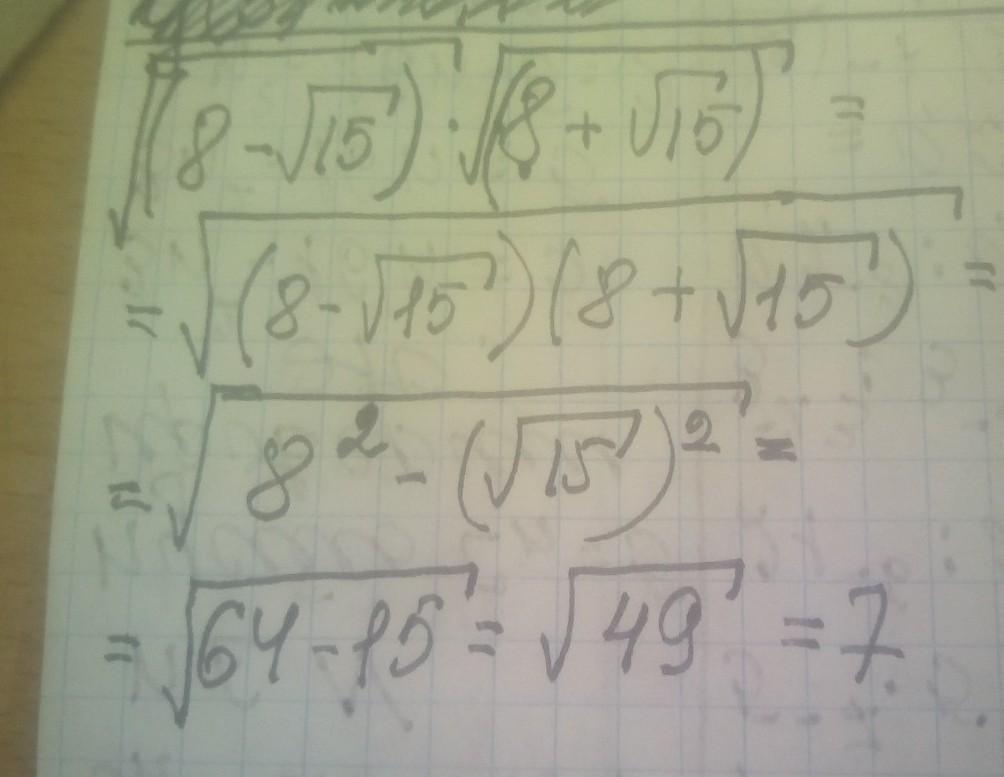 √(8-√15) · √(8+√15) =
= √(8-√15)(8+√15) =
= √8²-(√15)² =
= √64-15 = √49 = 7